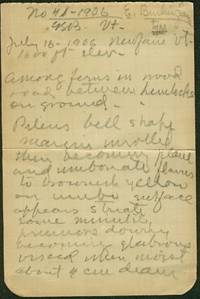 No 41-1906 E.
Vt.
July 16-1906 Newfane Vt.
1600 ft elev.
Among ferns in wood
road between hemlocks
on ground.
Pileus bell shape
margin inrolled
then becoming plane
and umbonate
to brownish yellow
on umbo surface
appears striate
some minutely
downy
becoming glabrous
viscid when moist
about 4 cm diam